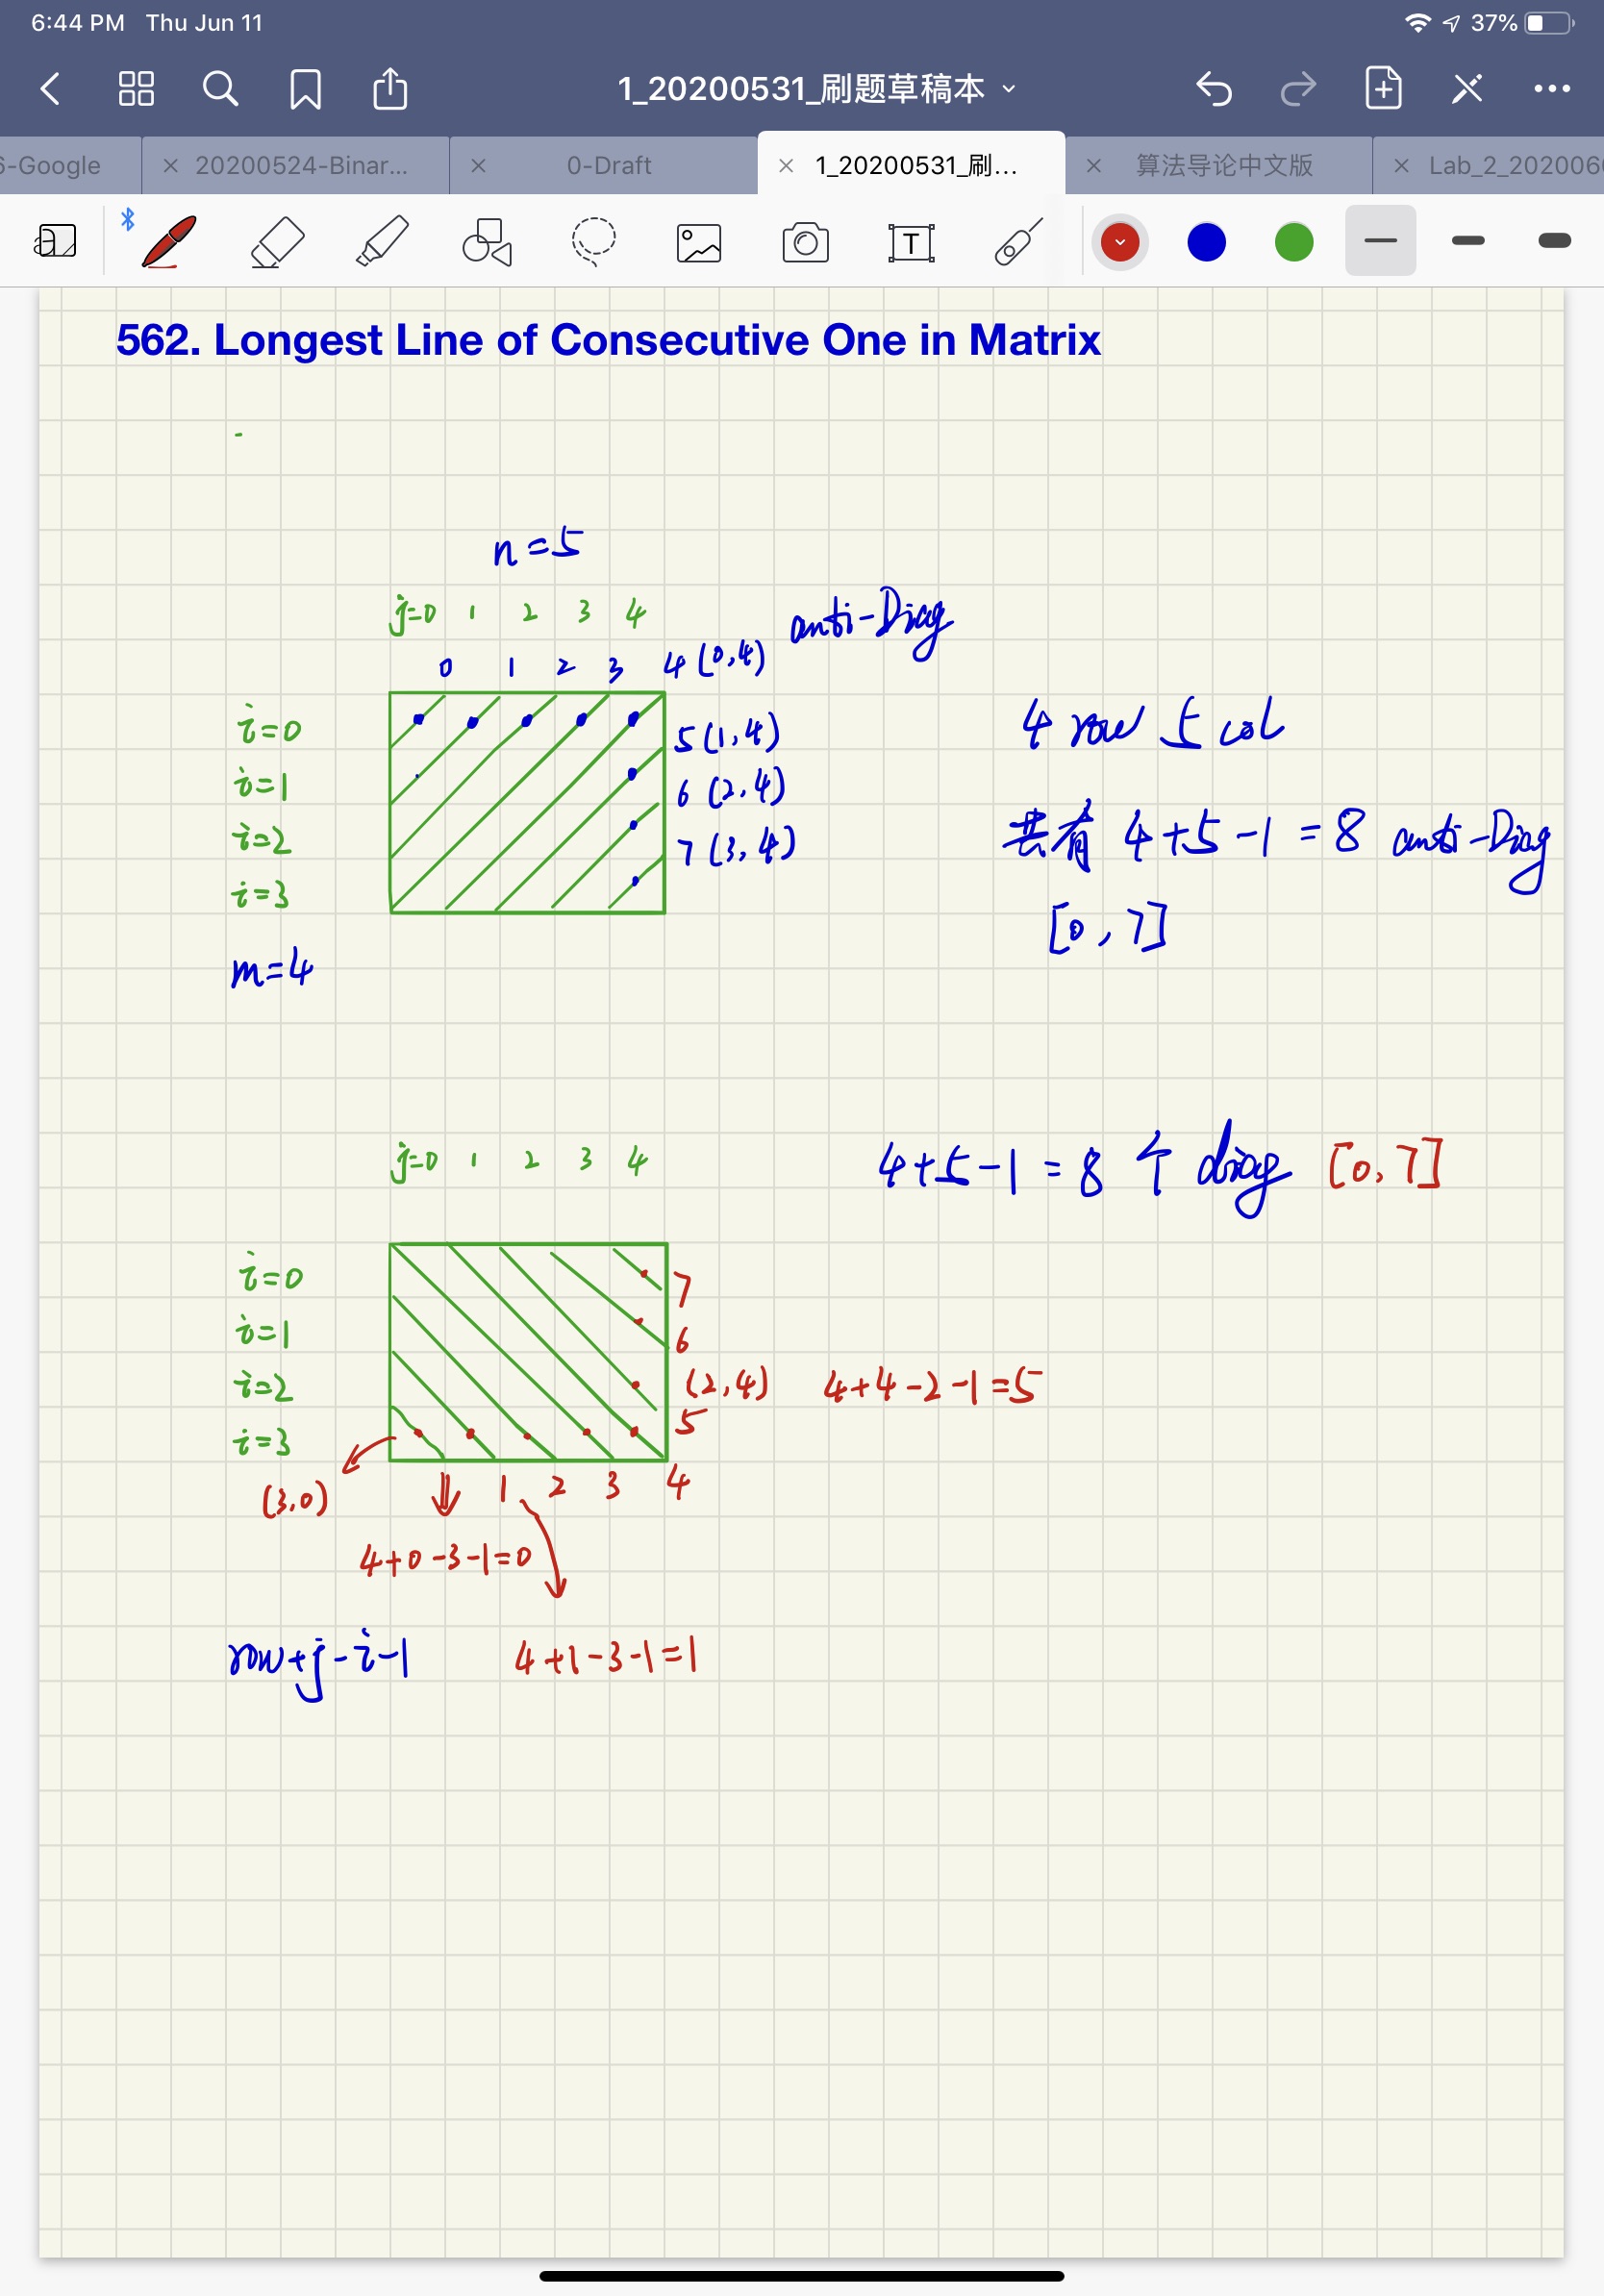 6:44 PM Thu Jun 11 37%
1_20200531_刷题草稿本
6-Google 20200524-Binar... 0-Draft 1_20200531_刷... 算法导论中文版 Lab_2_202006
T
562. Longest Line of Consecutive One in Matrix
n=5
j=0 1 2 3 4 anti-Diag
0 1 2 3 4 (0,4)
i=0 5 (1,4) 4 row 5 col
i=1 6 (2,4)
i=2 7 (3,4) 共有 4+5-1=8 anti-Diag
i=3 [0,7]
m=4
j=0 1 2 3 4 4+5-1=8 个 diag [0,7]
i=0 7
i=1 6
i=2 (2,4) 4+4-2-1=5
i=3 5
(3,0) 1 2 3 4
4+0-3-1=0
row+j-i-1 4+1-3-1=1